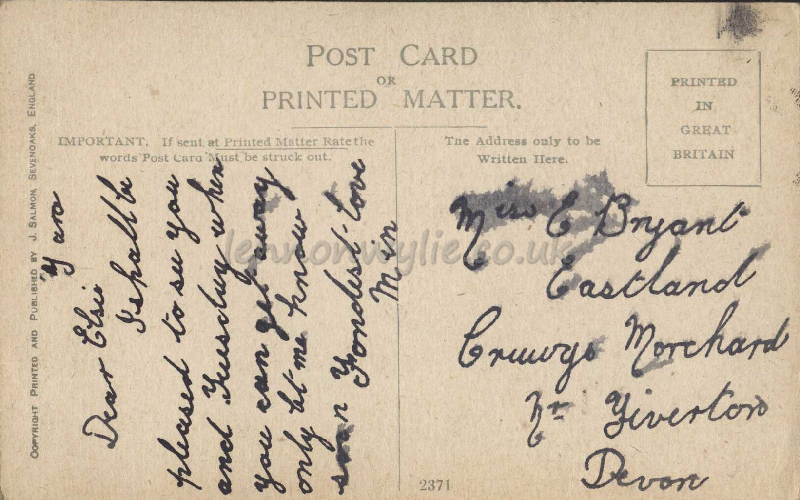 POST CARD
OR
PRINTED MATTER.
PRINTED
IN
GREAT
BRITAIN
IMPORTANT. If sent at Printed Matter Rate the
words Post Card Must be struck out.
The Address only to be
Written Here.
COPYRIGHT PRINTED AND PUBLISHED BY J. SALMON, SEVENOAKS, ENGLAND
Dear Elsie
I shall be
pleased to see you
and Tuesday when
you can get away
only let me know
soon Fondest love
Min
Miss E Bryant
Eastland
Cruwys Morchard
Nr Tiverton
Devon
2371
lennonwylie.co.uk